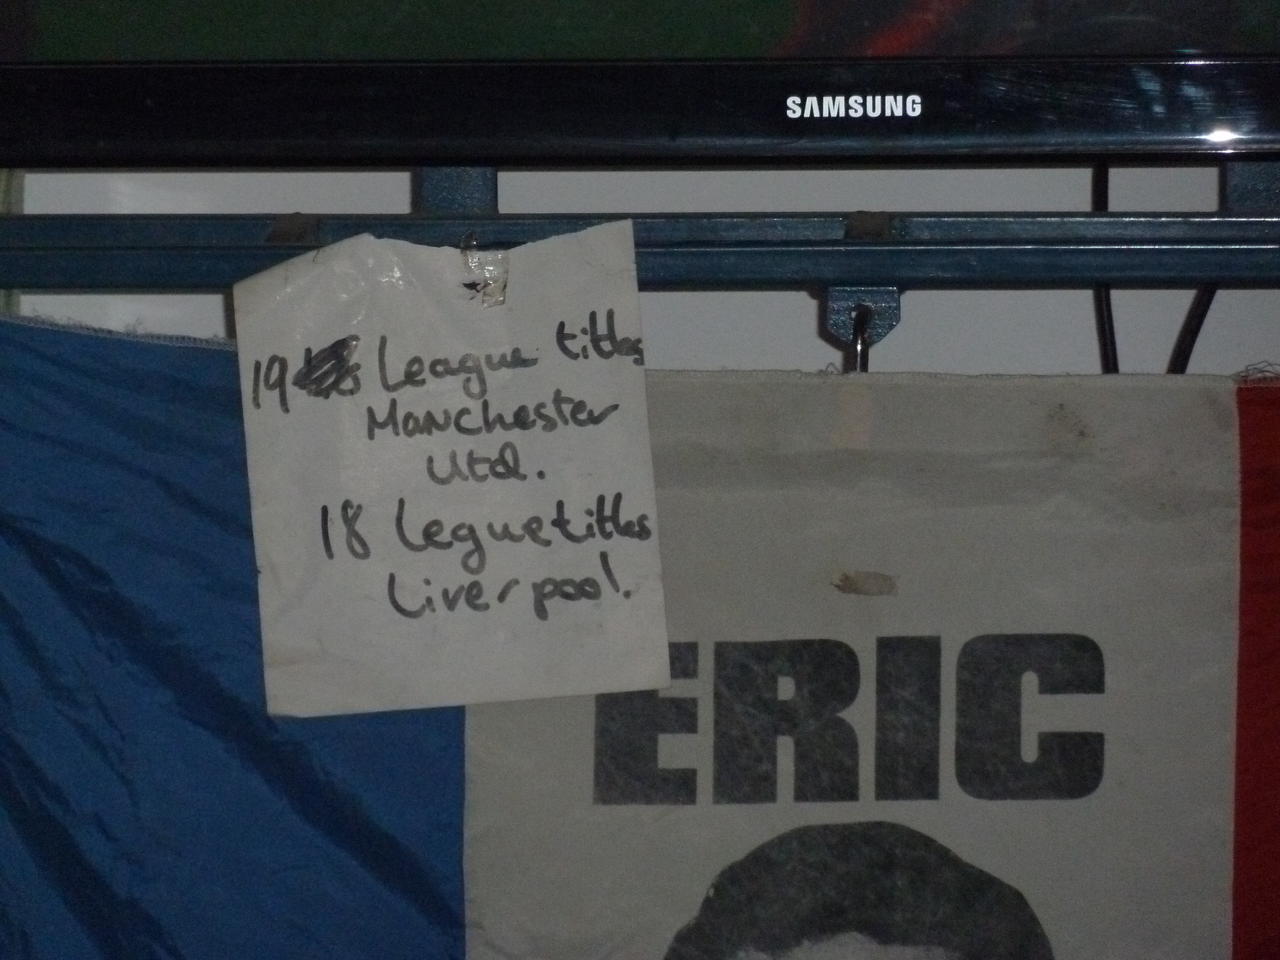 SAMSUNG
19 League titles
Manchester
Utd.
18 Legue titles
Liverpool.
ERIC